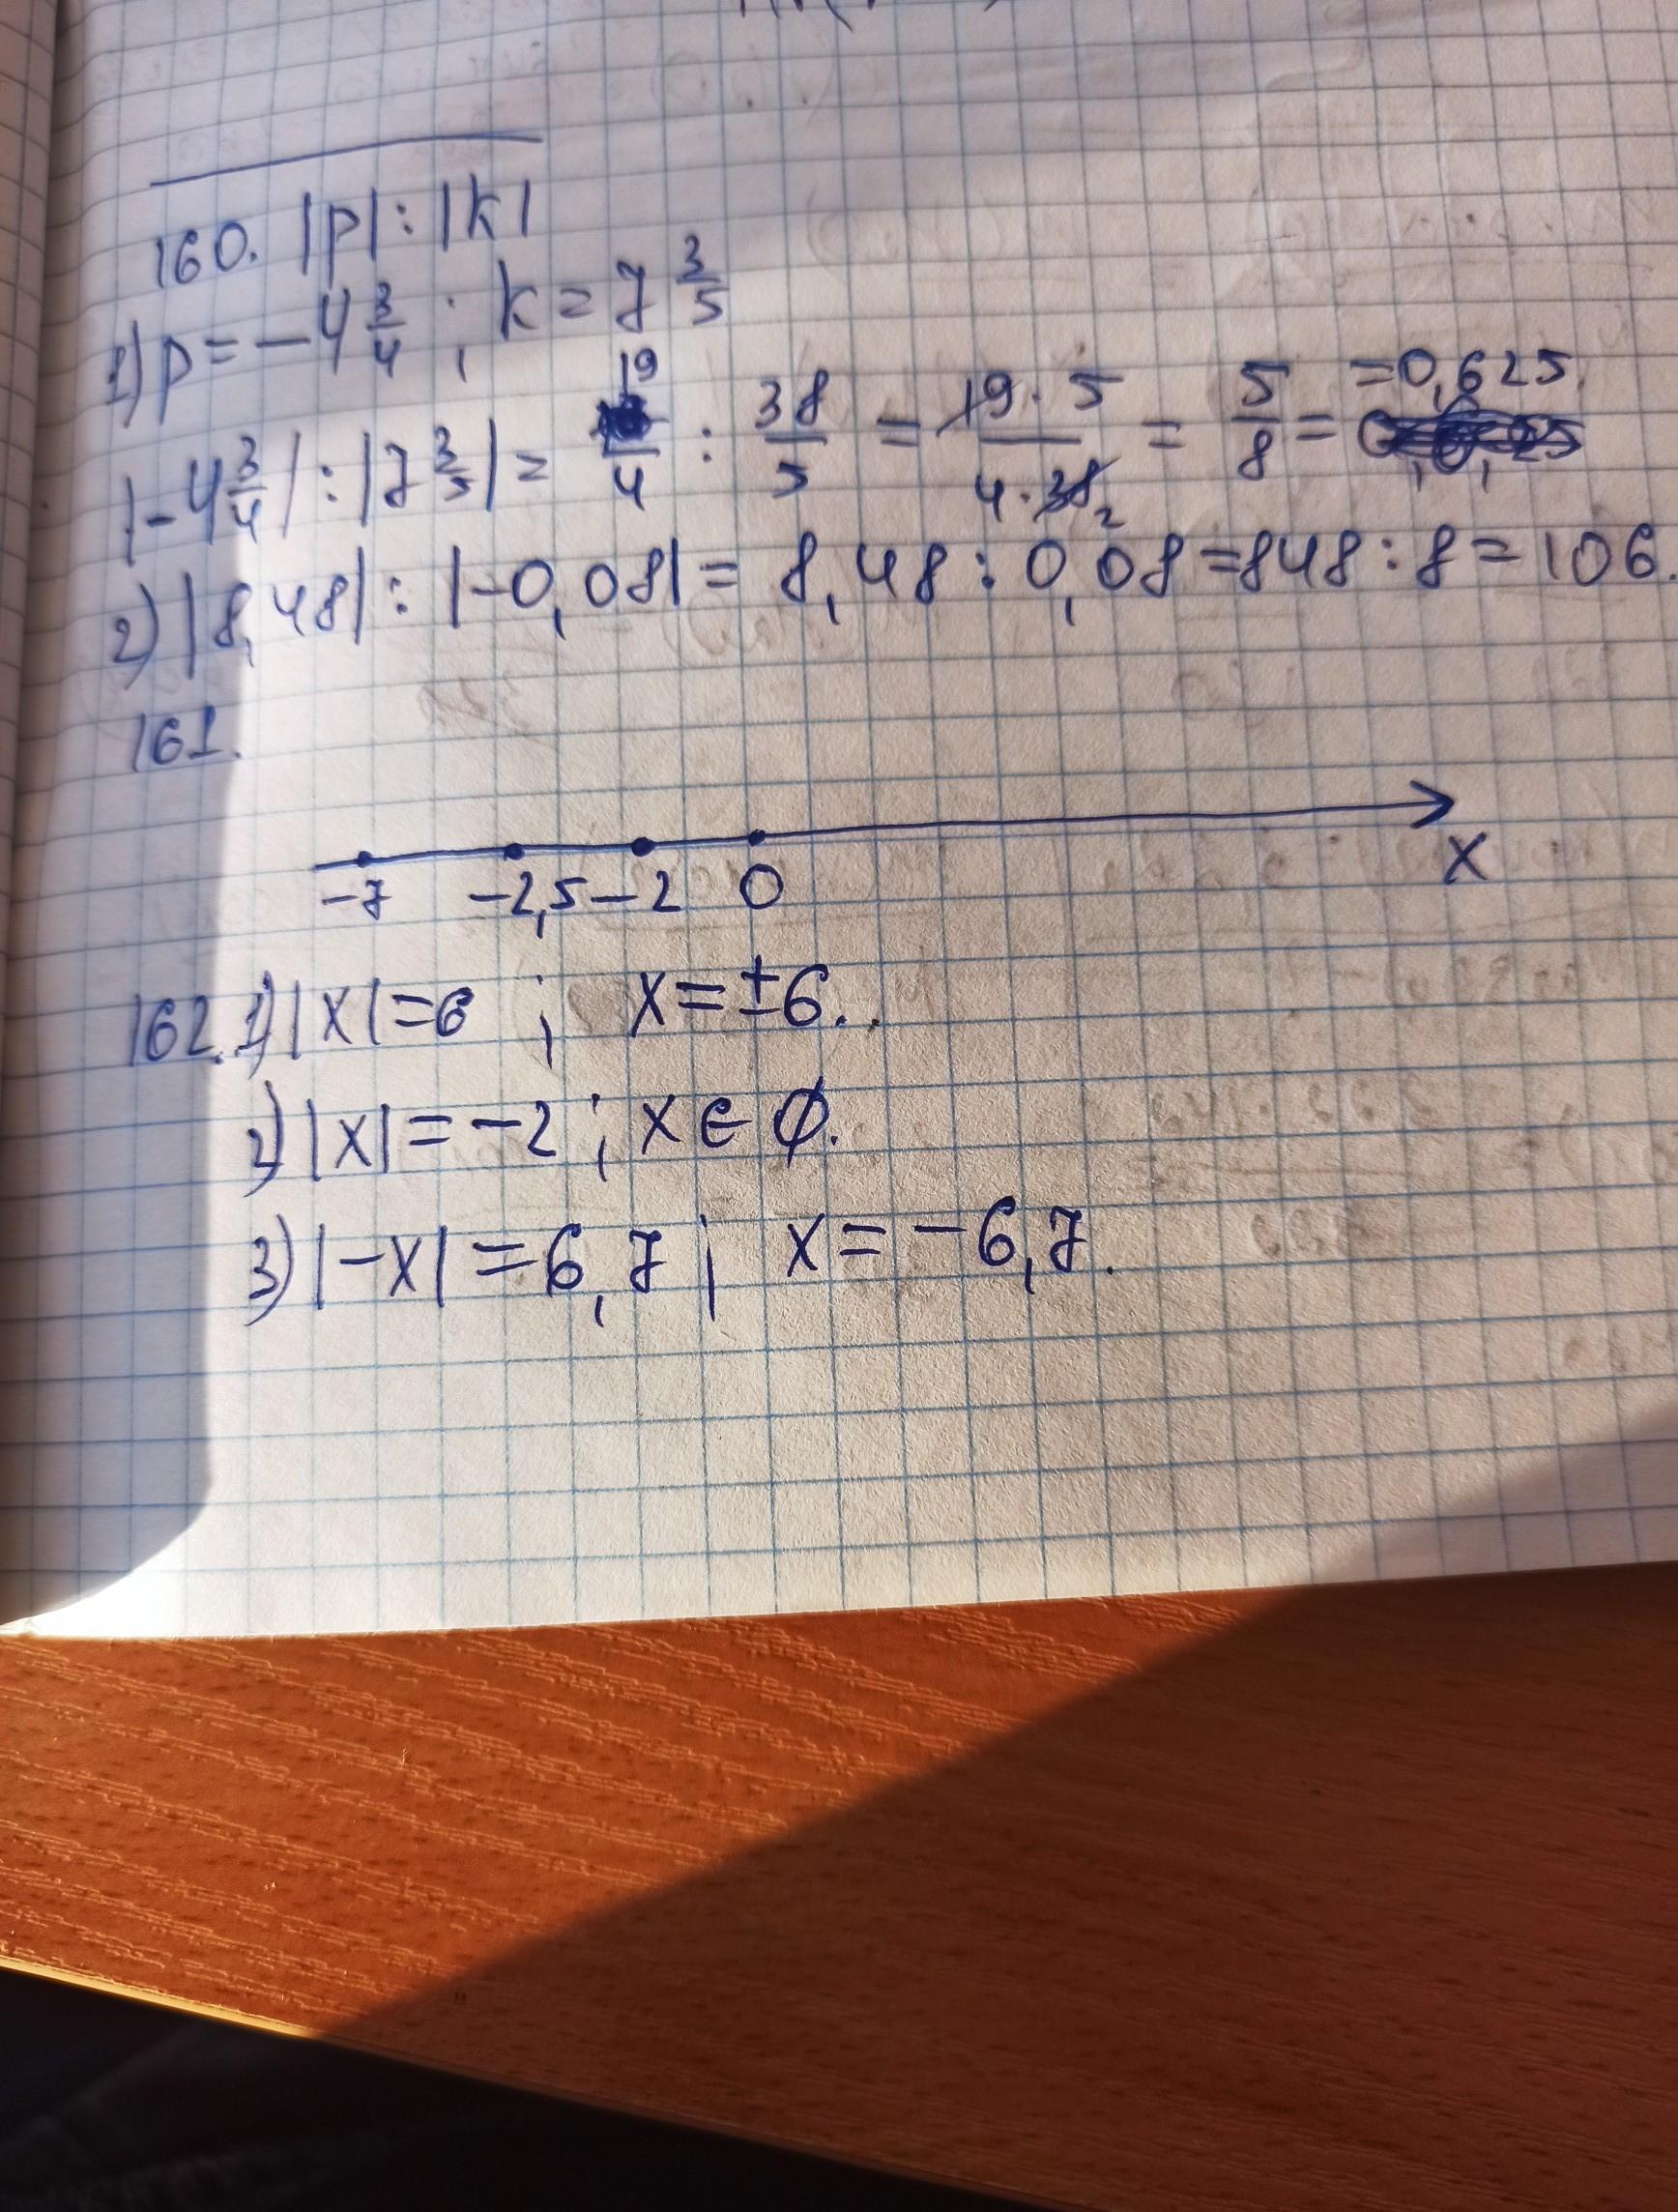 160. |p| : |k|
1) p = -4 3/4 ; k = 7 3/5
|-4 3/4| : |7 3/5| = 19/4 : 38/5 = 19·5/4·38 2 = 5/8 = = 0,625.
2) |8,48| : |-0,08| = 8,48 : 0,08 = 848 : 8 = 106.
161.
-7 -2,5 -2 0 x
162. 1) |x| = 6 ; x = ±6.
2) |x| = -2 ; x ∈ ∅.
3) |-x| = 6,7 ; x = -6,7.